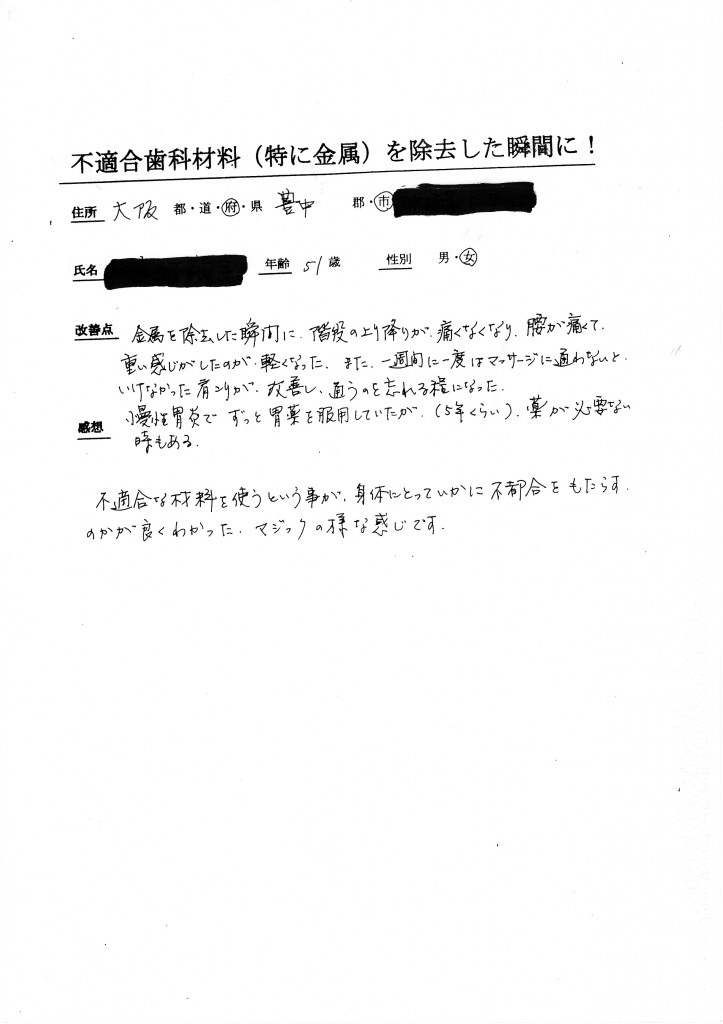 不適合歯科材料（特に金属）を除去した瞬間に！
住所 大阪 都・道・府・県 豊中 郡・市
氏名 年齢 51歳 性別 男・女
改善点 金属を除去した瞬間に、階段の上り降りが、痛くなくなり、腰が痛くて、
重い感じがしたのが、軽くなった。また、一週間に一度はマッサージに通わないと、
いけなかった肩こりが、改善し、通うのを忘れる程になった。
慢性胃炎で ずっと胃薬を服用していたが、(5年くらい)、薬が必要ない
感想
時もある。
不適合な材料を使うという事が、身体にとっていかに不都合をもたらす、
のかが良くわかった。マジックの様な感じです。